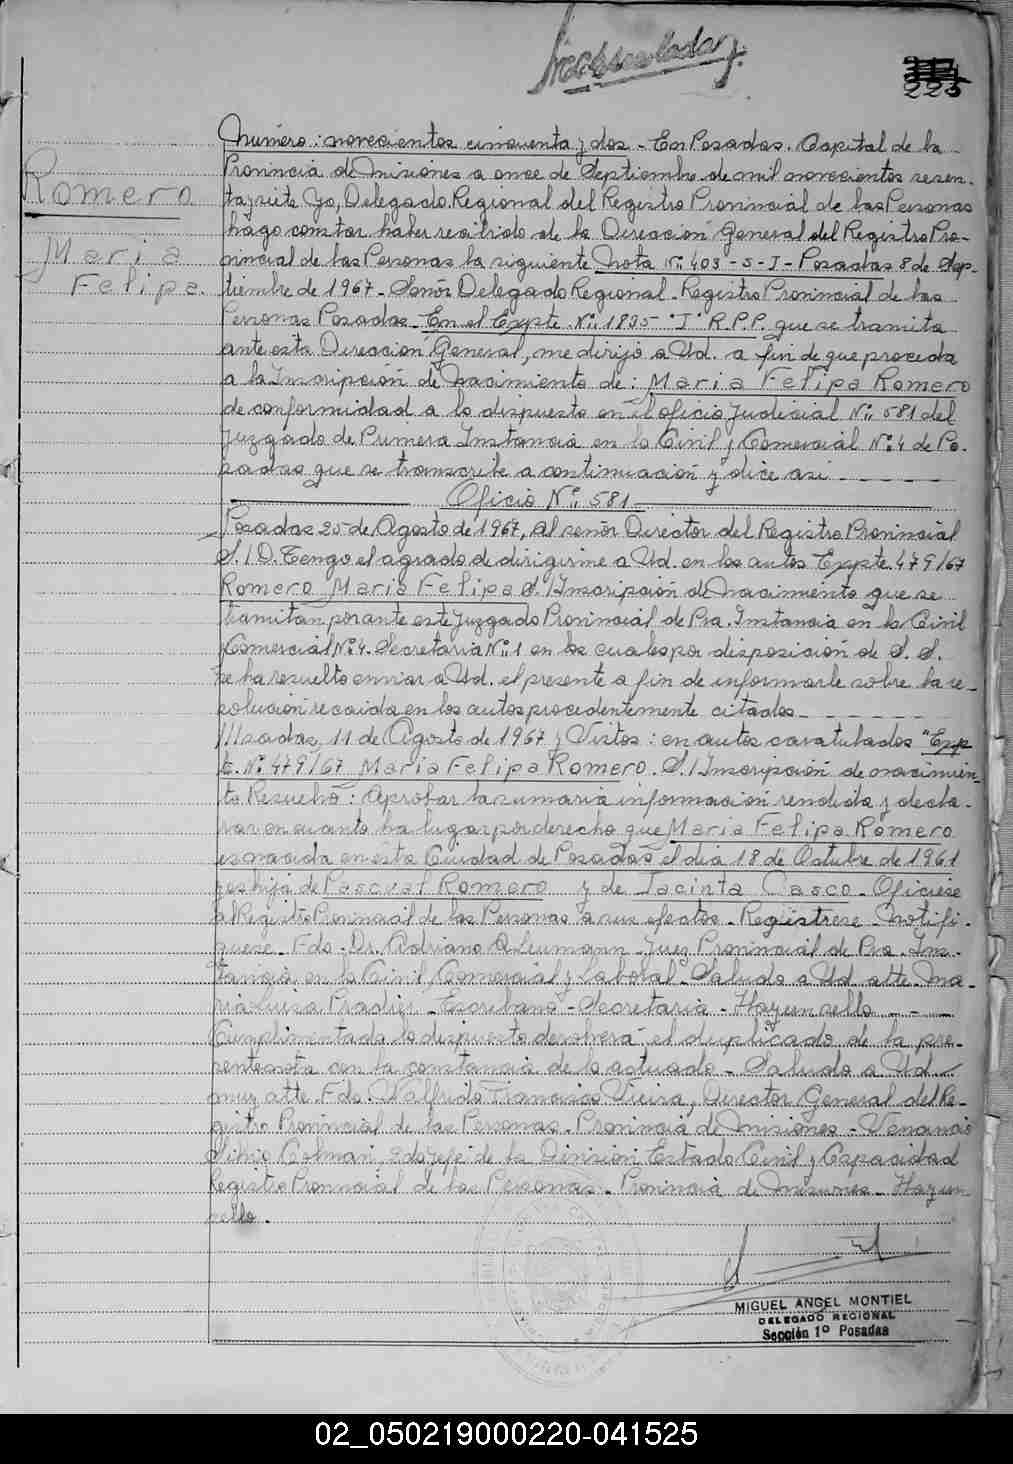 Inmaculada
225
Romero
Maria
Felipa.
Número: novecientos cincuenta y dos - En Posadas. Capital de la
Provincia de Misiones a once de Septiembre de mil novecientos sesen-
ta y siete Yo, Delegado Regional del Registro Provincial de las Personas
hago constar haber recibido de la Dirección General del Registro Pro-
vincial de las Personas la siguiente Nota Nº: 403 - S - J - Posadas 8 de Sep-
tiembre de 1967 - Señor Delegado Regional - Registro Provincial de las
Personas Posadas - En el Expte Nº: 1835 "J" R.P.P. que se tramita
ante esta Dirección General, me dirijo a Ud. a fin de que proceda
a la Inscripción de Nacimiento de: Maria Felipa Romero
de conformidad a lo dispuesto en el oficio Judicial Nº: 581 del
Juzgado de Primera Instancia en lo Civil y Comercial Nº: 4 de Po-
sadas que se transcribe a continuación y dice así
Oficio Nº: 581
Posadas 25 de Agosto de 1967, al señor Director del Registro Provincial
S. / D. Tengo el agrado de dirigirme a Ud. en los autos Expte. 479/67
Romero Maria Felipa S. / Inscripción de Nacimiento que se
tramitan por ante este Juzgado Provincial de Pra. Instancia en lo Civil
y Comercial Nº: 4. Secretaria Nº: 1 en los cuales por disposición de S. S.
se ha resuelto enviar a Ud. el presente a fin de informarle sobre la re-
solución recaida en los autos procedentemente citados
///sadas, 11 de Agosto de 1967 y Vistos: en autos caratulados "Exp
te. Nº: 479/67 Maria Felipa Romero. S. / Inscripción de nacimien-
to Resuelvo: Aprobar la sumaria información rendida y decla-
rar en cuanto ha lugar por derecho que Maria Felipa Romero
es nacida en esta Ciudad de Posadas el dia 18 de Octubre de 1961
y es hija de Pascual Romero y de Jacinta Casco - Oficiese
al Registro Provincial de las Personas a sus efectos - Registrese - Notifi-
quese - Fdo - Dr. Adriano A. Leumann - Juez Provincial de Pra. Ins-
tancia en lo Civil, Comercial y Laboral - Saludo a Ud atte. Ma-
ria Luisa Pradier - Escribano - Secretaria - Hay un sello
Cumplimentado lo dispuesto devolverá el duplicado de la pre-
sente nota con la constancia de lo actuado - Saludo a Ud.
muy atte. Fdo. Walfrido Francisco Vieira, Director General del Re-
gistro Provincial de las Personas - Provincia de Misiones - Venancio
Silvio Colman, 2do Jefe de la Division Estado Civil y Capacidad
Registro Provincial de las Personas - Provincia de Misiones - Hay un
sello.
MIGUEL ANGEL MONTIEL
DELEGADO REGIONAL
Sección 1º Posadas
02_050219000220-041525